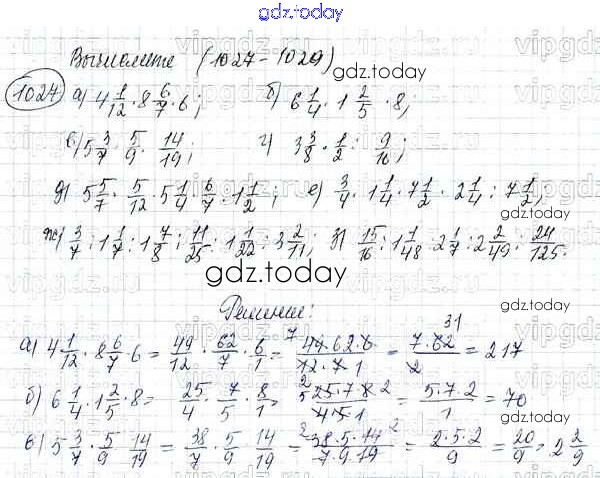 gdz.today
Вычислите (1027-1029)
gdz.today
1027 а) 4 1/12 · 8 6/7 · 6; б) 6 1/4 · 1 2/5 · 8;
в) 5 3/7 · 5/9 · 14/19; г) 3 3/8 · 1/2 : 9/16;
д) 5 5/7 · 5/12 · 5 1/4 · 6/7 · 1 1/2; е) 3/4 · 1 1/4 · 7 1/2 · 2 1/4 : 7 1/2;
gdz.today
ж) 3/7 : 1 1/7 : 1 7/8 : 11/25 : 1 1/22 : 3 2/11; з) 15/16 : 1 1/48 · 2 1/7 : 2 2/49 : 24/125.
gdz.today
Решение:
а) 4 1/12 · 8 6/7 · 6 = 49/12 · 62/7 · 6/1 = 49·62·6/12·7·1 = 7·62/2 = 217
б) 6 1/4 · 1 2/5 · 8 = 25/4 · 7/5 · 8/1 = 25·7·8/4·5·1 = 5·7·2/1 = 70
в) 5 3/7 · 5/9 · 14/19 = 38/7 · 5/9 · 14/19 = 38·5·14/7·9·19 = 2·5·2/9 = 20/9 = 2 2/9
gdz.today